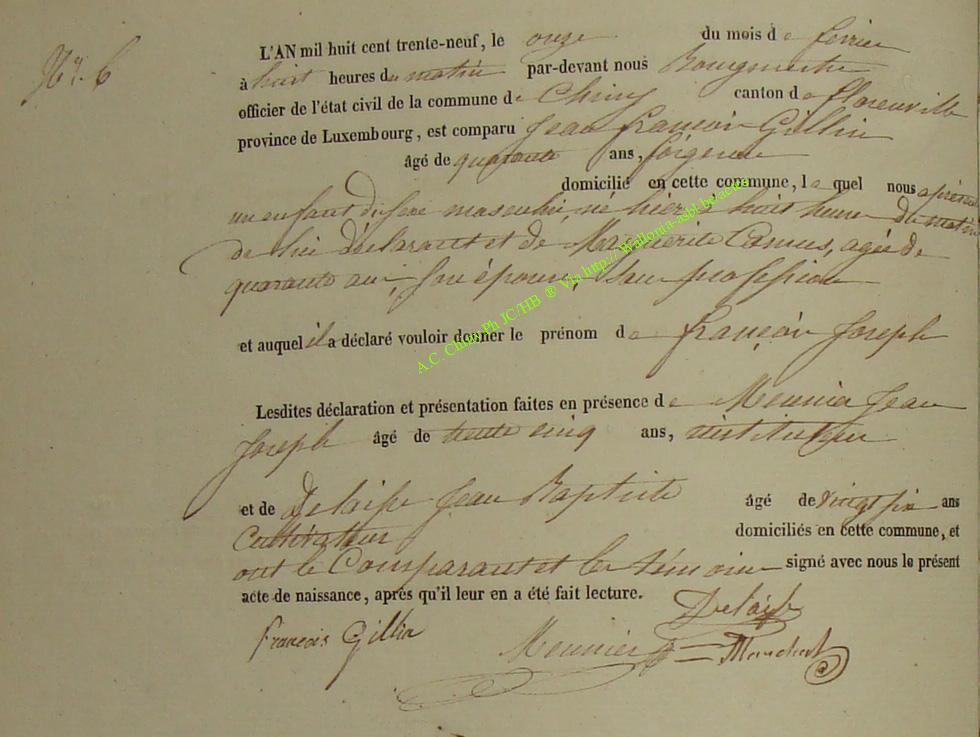 N° 6
L'AN mil huit cent trente-neuf, le onze du mois de fevrier
à huit heures du matin par-devant nous Bourgmestre
officier de l'état civil de la commune de Chiny canton de florenville
province de Luxembourg, est comparu Jean françois Gillin
âgé de quarante ans, forgeron
domicilié en cette commune, le quel nous a présenté
un enfant du sexe masculin, né hier à huit heures du matin
de lui déclarant et de Marguerite Camus, agée de
quarante ans, son épouse, sans profession
et auquel il a déclaré vouloir donner le prénom de françois Joseph
Lesdites déclaration et présentation faites en présence de Meunier Jean
Joseph âgé de trente cinq ans, instituteur
et de Delaisse Jean Baptiste âgé de vingt six ans
Cultivateur domiciliés en cette commune, et
ont le Comparant et les témoins signé avec nous le présent
acte de naissance, après qu'il leur en a été fait lecture.
Delaisse
françois Gillin
Meunier
A.C. Chiny Ph JC/HB ® Via http://Wallonia-asbl.be/actes